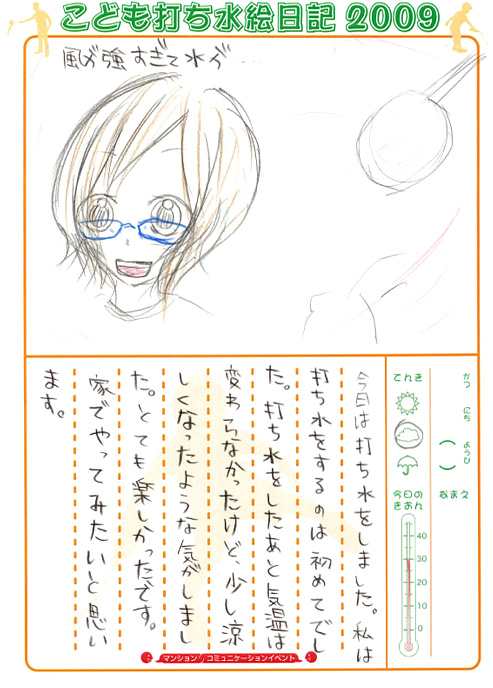 こども打ち水絵日記 2009
風が強すぎて水が
がつ にち ようび
( )
なまえ
てんき
今日の
きおん
40
30
20
10
0
今日は打ち水をしました。私は
打ち水をするのは初めてでし
た。打ち水をしたあと気温は
変わらなかったけど、少し涼
しくなったような気がしまし
た。とても楽しかったです。
家でやってみたいと思い
ます。
マンション コミュニケーションイベント